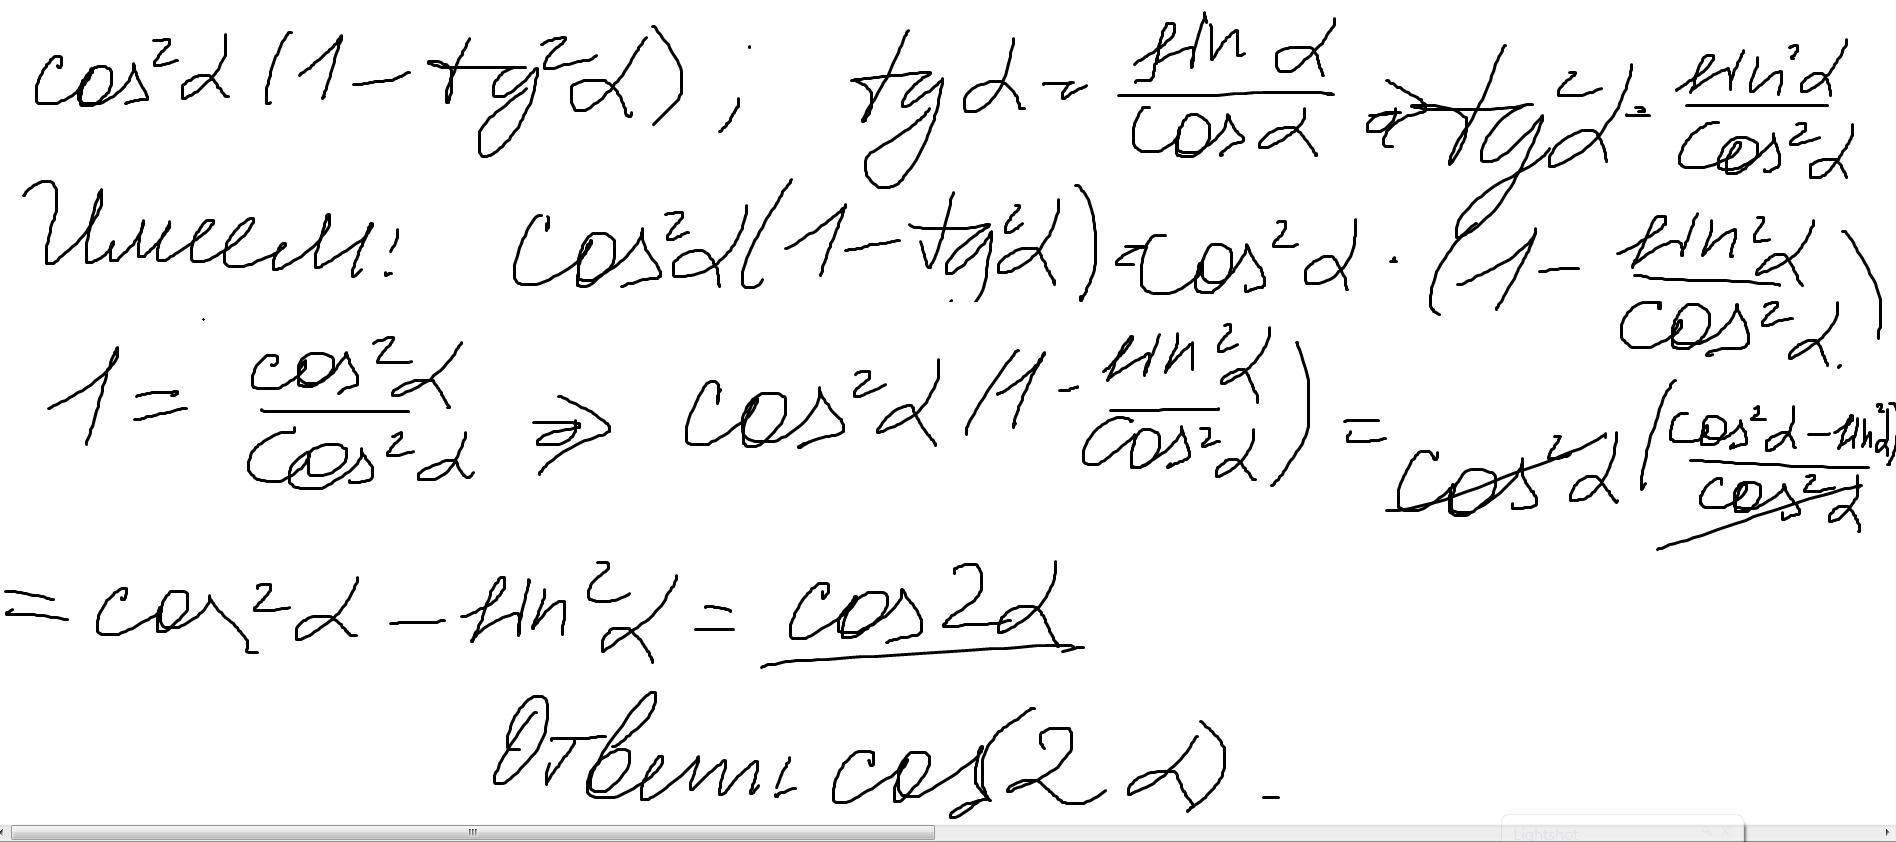 cos²α (1 - tg²α) ; tg α = sin α / cos α ⇒ tg²α = sin²α / cos²α
Имеем: cos²α (1 - tg²α) = cos²α · (1 - sin²α / cos²α)
1 = cos²α / cos²α ⇒ cos²α (1 - sin²α / cos²α) = cos²α ((cos²α - sin²α) / cos²α)
= cos²α - sin²α = cos2α
Ответ: cos(2α).
Lightshot